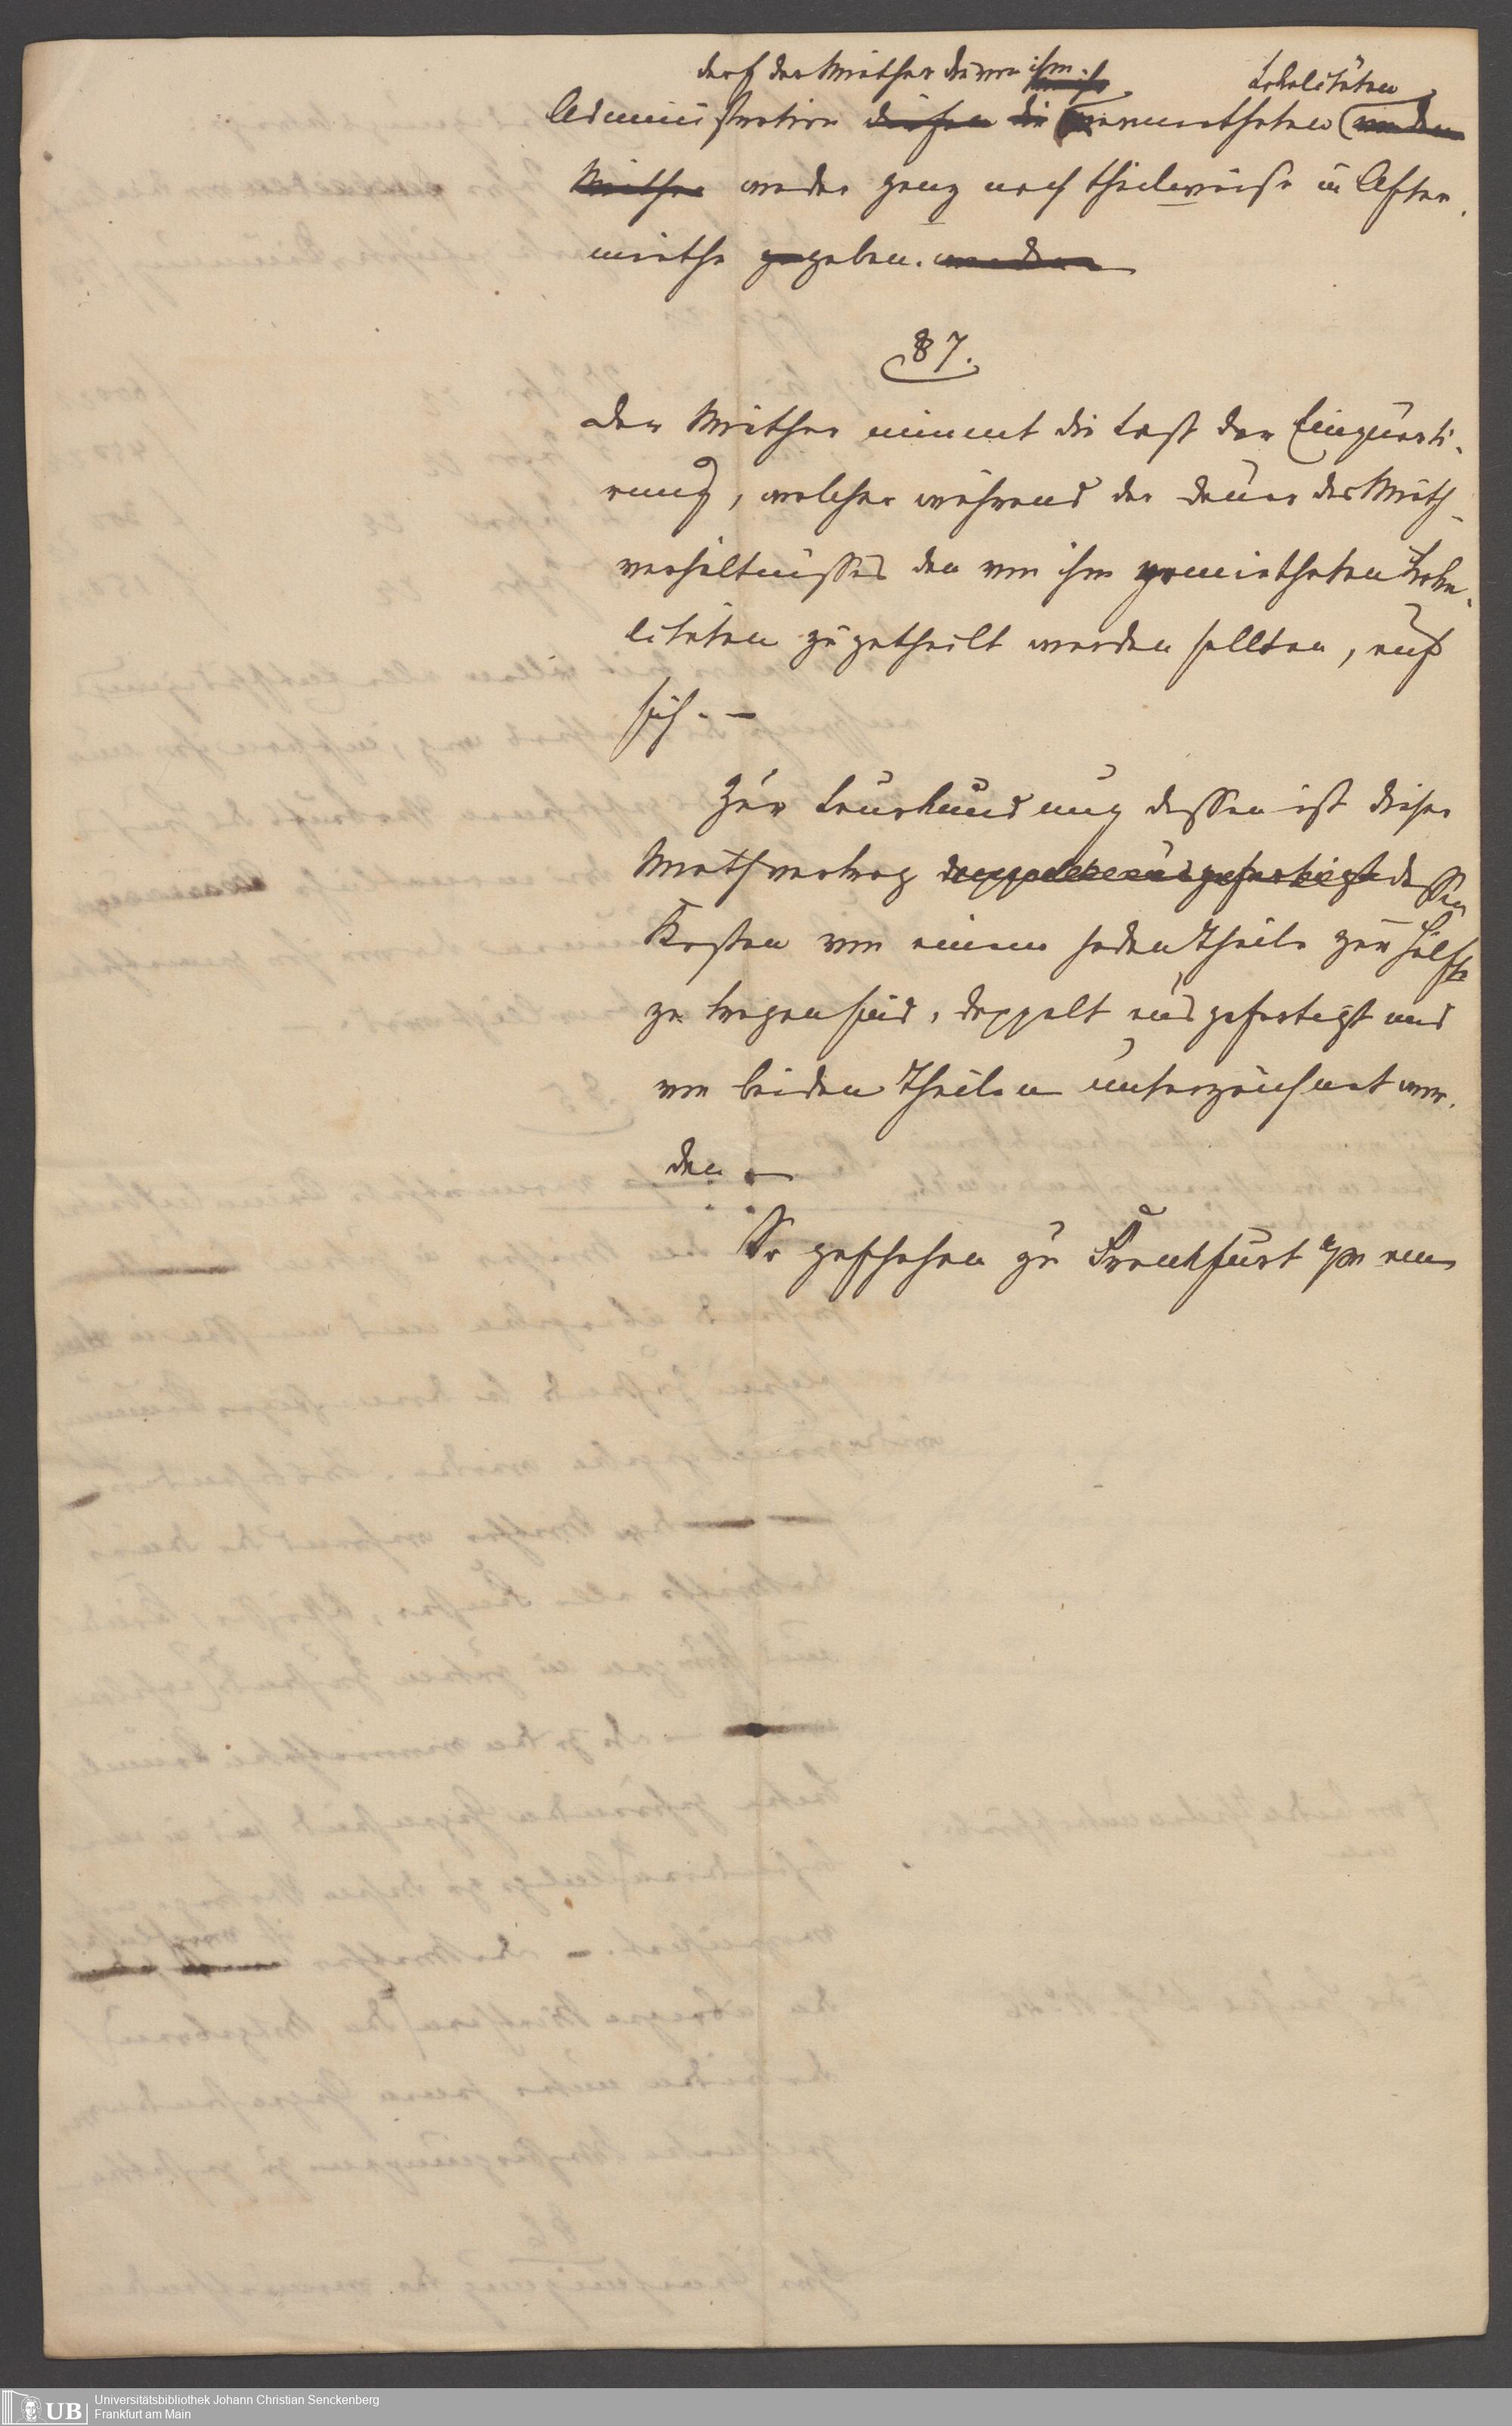 darf der Miether dieser ihm
Lokalitäten
Administration dürfen die vermietheten von dem
Miether weder ganz noch theilweise in After-
miethe gegeben. werden
§ 7.
Der Miether nimmt die Last der Einquarti-
rung, welcher während der Dauer des Mieth-
verhältnisses den von ihm gemietheten Loka-
litäten zugetheilt werden sollten, auf
sich. —
Zur Beurkundung dessen ist dieser
Miethvertrag doppelt ausgefertigt dessen
Kosten von einem jeden Theile zur Hälfte
zu tragen sind, doppelt ausgefertigt und
von beiden Theilen unterzeichnet wor-
den. —
So geschehen zu Frankfurt a/M am
Universitätsbibliothek Johann Christian Senckenberg
Frankfurt am Main
UB